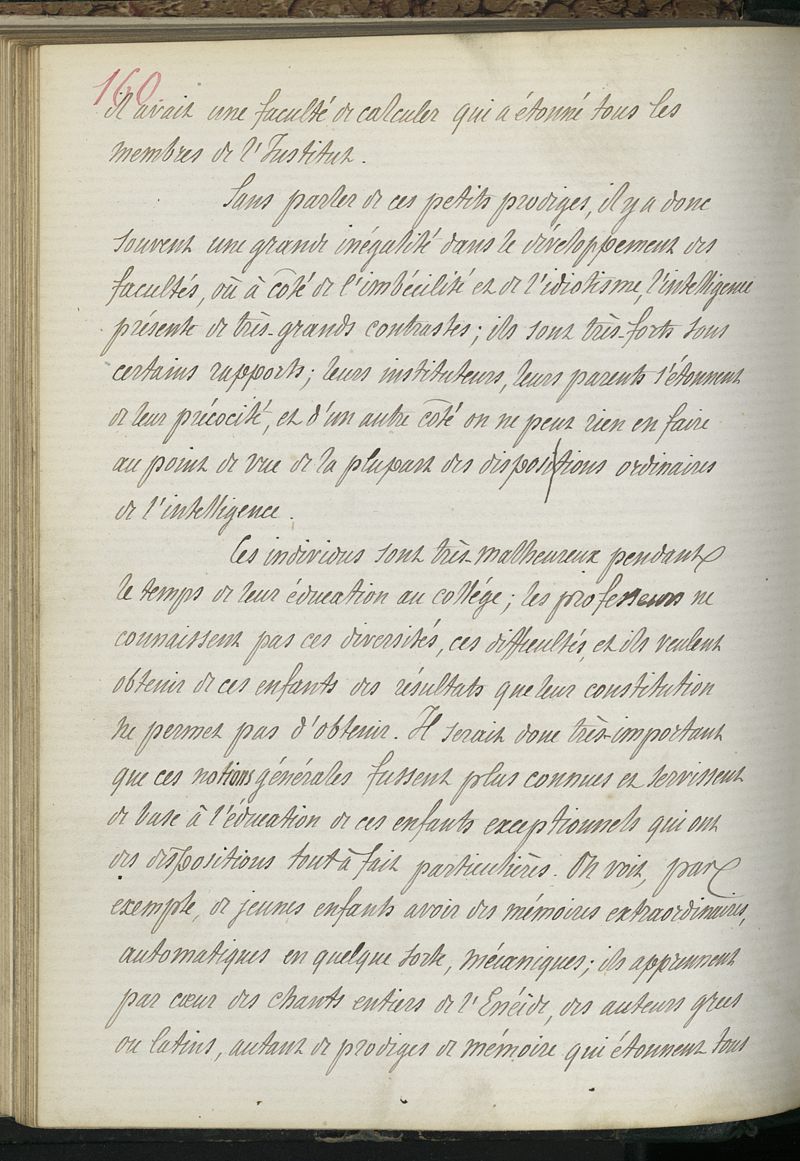 160
il avait une faculté de calculer qui a étonné tous les
membres de l'Institut.
Sans parler de ces petits prodiges, il y a donc
souvent une grande inégalité dans le développement des
facultés, où à côté de l'imbécilité et de l'idiotisme, l'intelligence
présente de très-grands contrastes; ils sont très-forts sous
certains rapports; leurs instituteurs, leurs parents s'étonnent
de leur précocité, et d'un autre côté on ne peut rien en faire
au point de vue de la plupart des dispositions ordinaires
de l'intelligence.
Ces individus sont très-malheureux pendant
le temps de leur éducation au collége; les professeurs ne
connaissent pas ces diversités, ces difficultés, et ils veulent
obtenir de ces enfants des résultats que leur constitution
ne permet pas d'obtenir. Il serait donc très-important
que ces notions générales fussent plus connues et servissent
de base à l'éducation de ces enfants exceptionnels qui ont
des dispositions tout à fait particulières. On voit, par
exemple, de jeunes enfants avoir des mémoires extraordinaires,
automatiques en quelque sorte, mécaniques; ils apprennent
par cœur des chants entiers de l'Enéide, des auteurs grecs
ou latins, autant de prodiges de mémoire qui étonnent tous